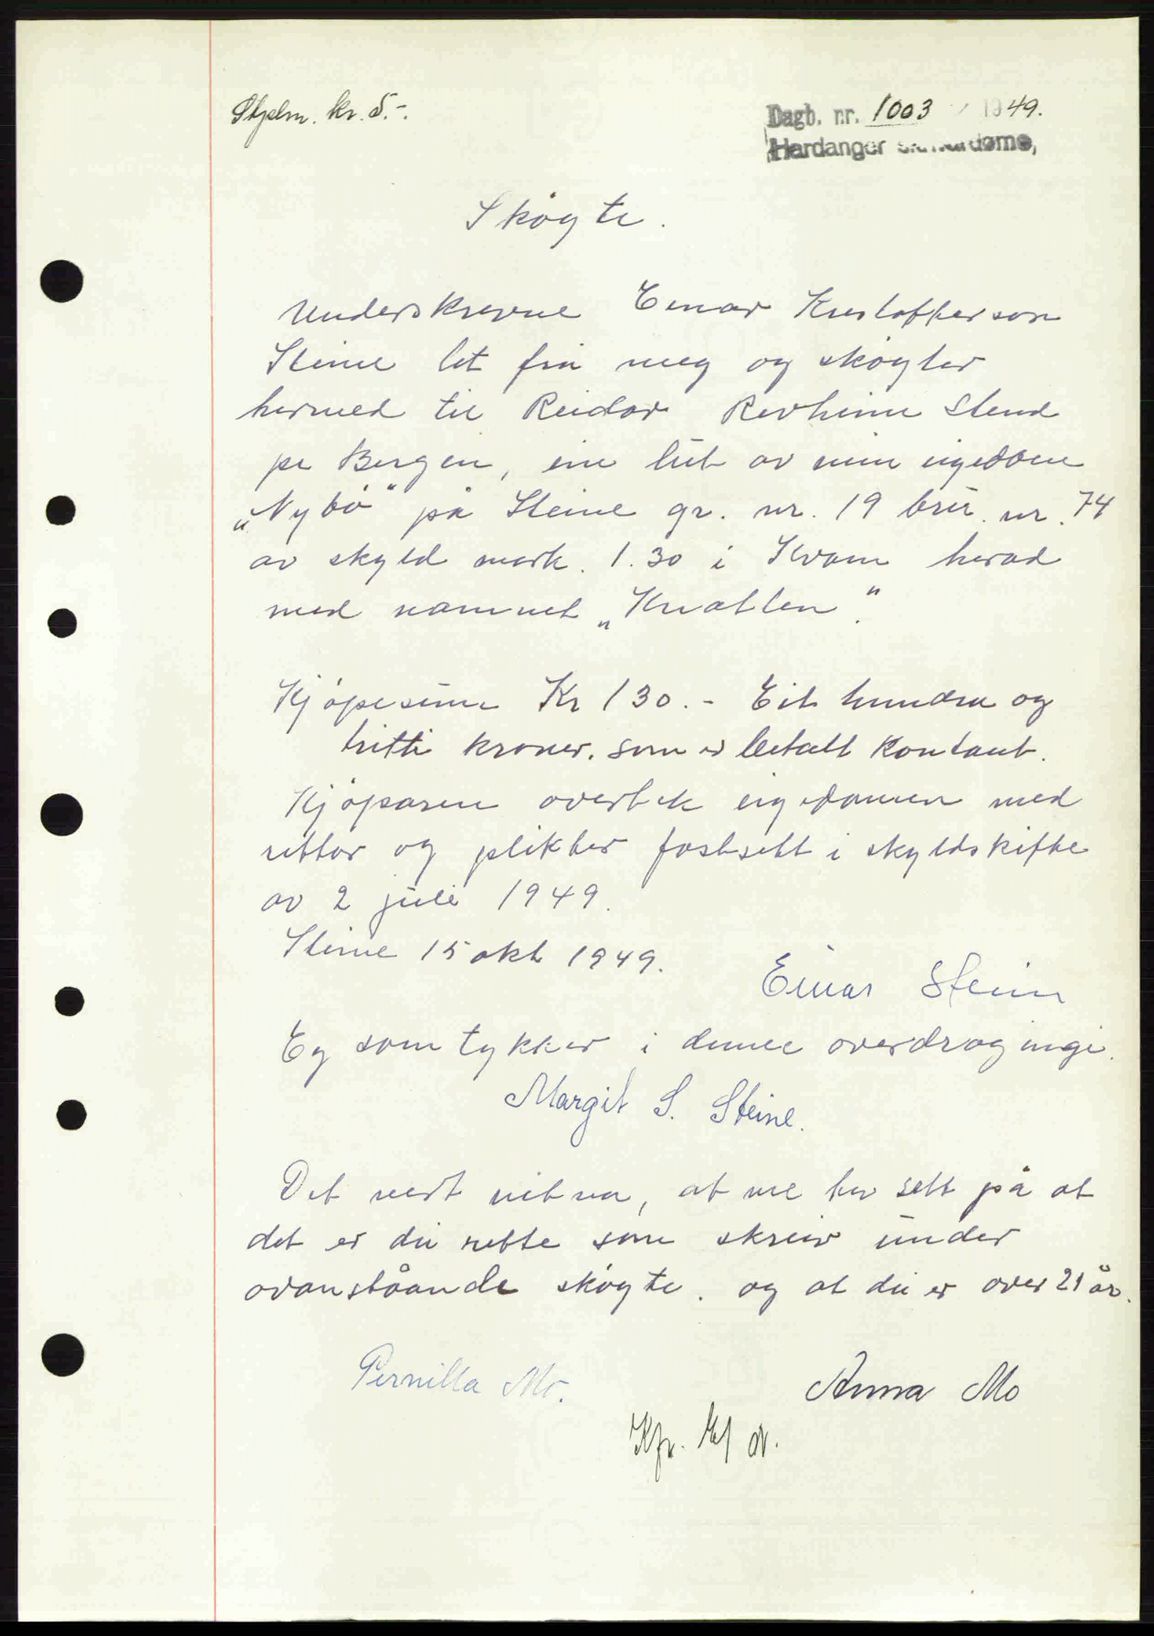 Stplm. kr. 5.-.
Dagb. nr. 1003 / 1949.
Hardanger
Skøyte.
Underskrevne Einar Kristofferson
Steine let frå meg og skøyter
hermed til Reidar Revheim Stend
pr Bergen, ein lut av min eigedom
„Nybö“ på Steine gr. nr. 19 bru. nr. 74
av skyld mark. 1.30 i Kvam herad
med namnet „Knatten“.
Kjöpesum Kr 130.- Eit hundra og
tritti kroner. som er betalt Kontant.
Kjöparen overtek eigedomen med
rettar og plikter fastsett i skyldskifte
av 2 juli 1949.
Steine 15 okt 1949.
Einar Steine
Eg samtykker i denne overdragingi.
Margit S. Steine.
Det vert vitna, at me har sett på at
det er dei rette som skreiv under
ovanståande skøyte. og at dei er over 21 år.
Pernilla Mo.
Anna Mo
Kfr.